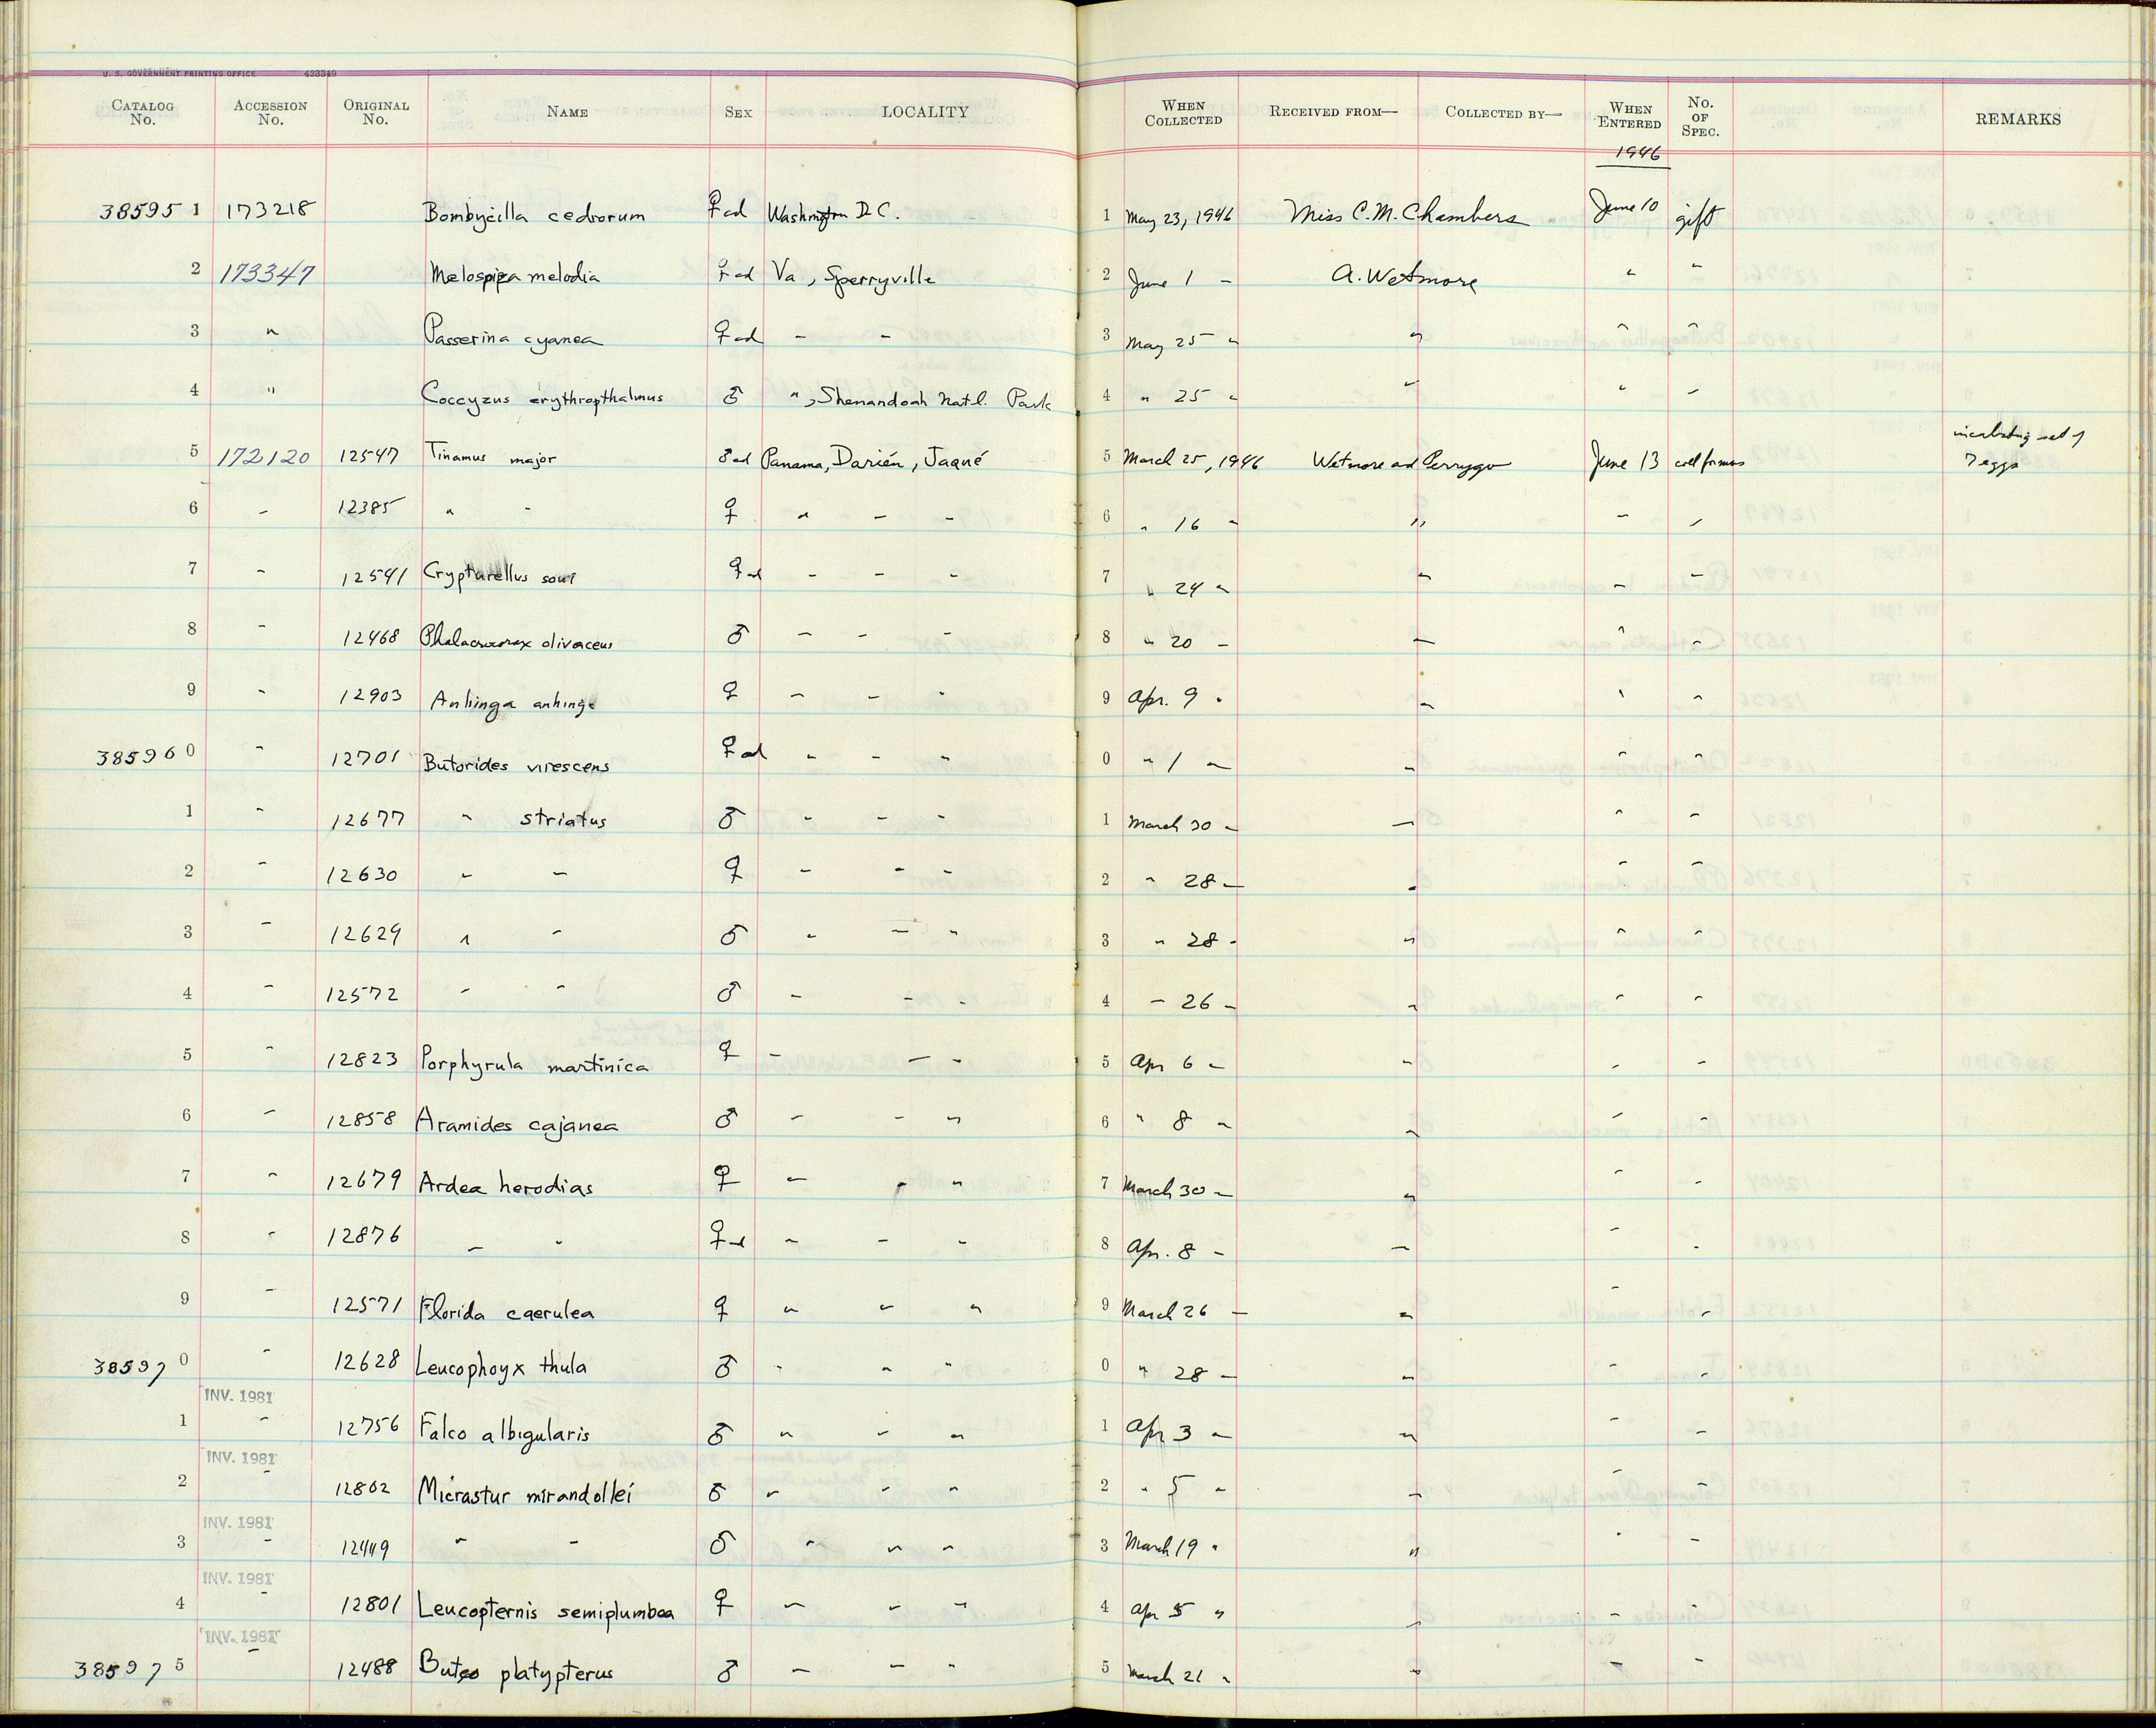 U. S. GOVERNMENT PRINTING OFFICE 423349
CATALOG No. ACCESSION No. ORIGINAL No. NAME SEX LOCALITY WHEN COLLECTED RECEIVED FROM— COLLECTED BY— WHEN ENTERED No. OF SPEC. REMARKS
1946
38595 1 173218 Bombycilla cedrorum ♀ad Washington D.C. 1 May 23, 1946 Miss C.M. Chambers June 10 gift
2 173347 Melospiza melodia ♀ad Va, Sperryville 2 June 1 " A. Wetmore " "
3 " Passerina cyanea ♀ad " " 3 May 25 " " " "
4 " Coccyzus erythropthalmus ♂ ", Shenandoah Natl. Park 4 " 25 " " " "
5 172120 12547 Tinamus major ♂ad Panama, Darién, Jaqué 5 March 25, 1946 Wetmore and Perrygo June 13 coll for mus incubating set of
7 eggs
6 " 12385 " " ♀ " " " 6 " 16 " " " "
7 " 12541 Crypturellus soui ♀ad " " " 7 " 24 " " " "
8 " 12468 Phalacrocorax olivaceus ♂ " " " 8 " 20 " " " "
9 " 12903 Anhinga anhinga ♀ " " " 9 Apr. 9 " " " "
385960 " 12701 Butorides virescens ♀ad " " " 0 " 1 " " " "
1 " 12677 " striatus ♂ " " " 1 March 30 " " " "
2 " 12630 " " ♀ " " " 2 " 28 " " " "
3 " 12629 " " ♂ " " " 3 " 28 " " " "
4 " 12572 " " ♂ " " " 4 " 26 " " " "
5 " 12823 Porphyrula martinica ♀ " " " 5 Apr 6 " " " "
6 " 12858 Aramides cajanea ♂ " " " 6 " 8 " " " "
7 " 12679 Ardea herodias ♀ " " " 7 March 30 " " " "
8 " 12876 " " ♀ad " " " 8 Apr. 8 " " " "
9 " 12571 Florida caerulea ♀ " " " 9 March 26 " " " "
38597 0 " 12628 Leucophoyx thula ♂ " " " 0 " 28 " " " "
INV. 1981
1 " 12756 Falco albigularis ♂ " " " 1 Apr 3 " " " "
INV. 1981
2 " 12802 Micrastur mirandollei ♂ " " " 2 " 5 " " " "
INV. 1981
3 " 12449 " " ♂ " " " 3 March 19 " " " "
INV. 1981
4 " 12801 Leucopternis semiplumbea ♀ " " " 4 Apr 5 " " " "
INV. 1981
38597 5 " 12488 Buteo platypterus ♂ " " " 5 March 21 " " " "